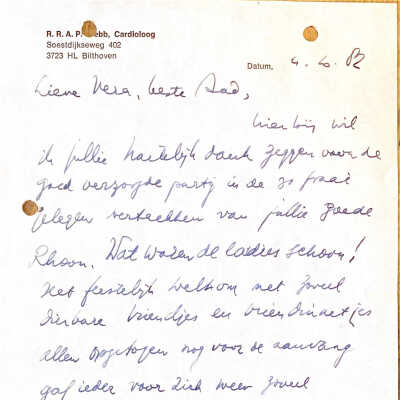 R. R. A. P. ebb, Cardioloog
Soestdijkseweg 402
3723 HL Bilthoven
Datum, 4. 6. 82
Lieve Vera, beste Aad,
Hierbij wil
ik jullie hartelijk dank zeggen voor de
goed verzorgde party in de zo fraai
gelegen vertrekken van jullie goede
Rhoon. Wat waren de ladies schoon!
Het feestelijk welkom met zoveel
dierbare vriendjes en vriendinnetjes
allen opgetogen nog voor de aanvang
gaf ieder voor zich weer zoveel